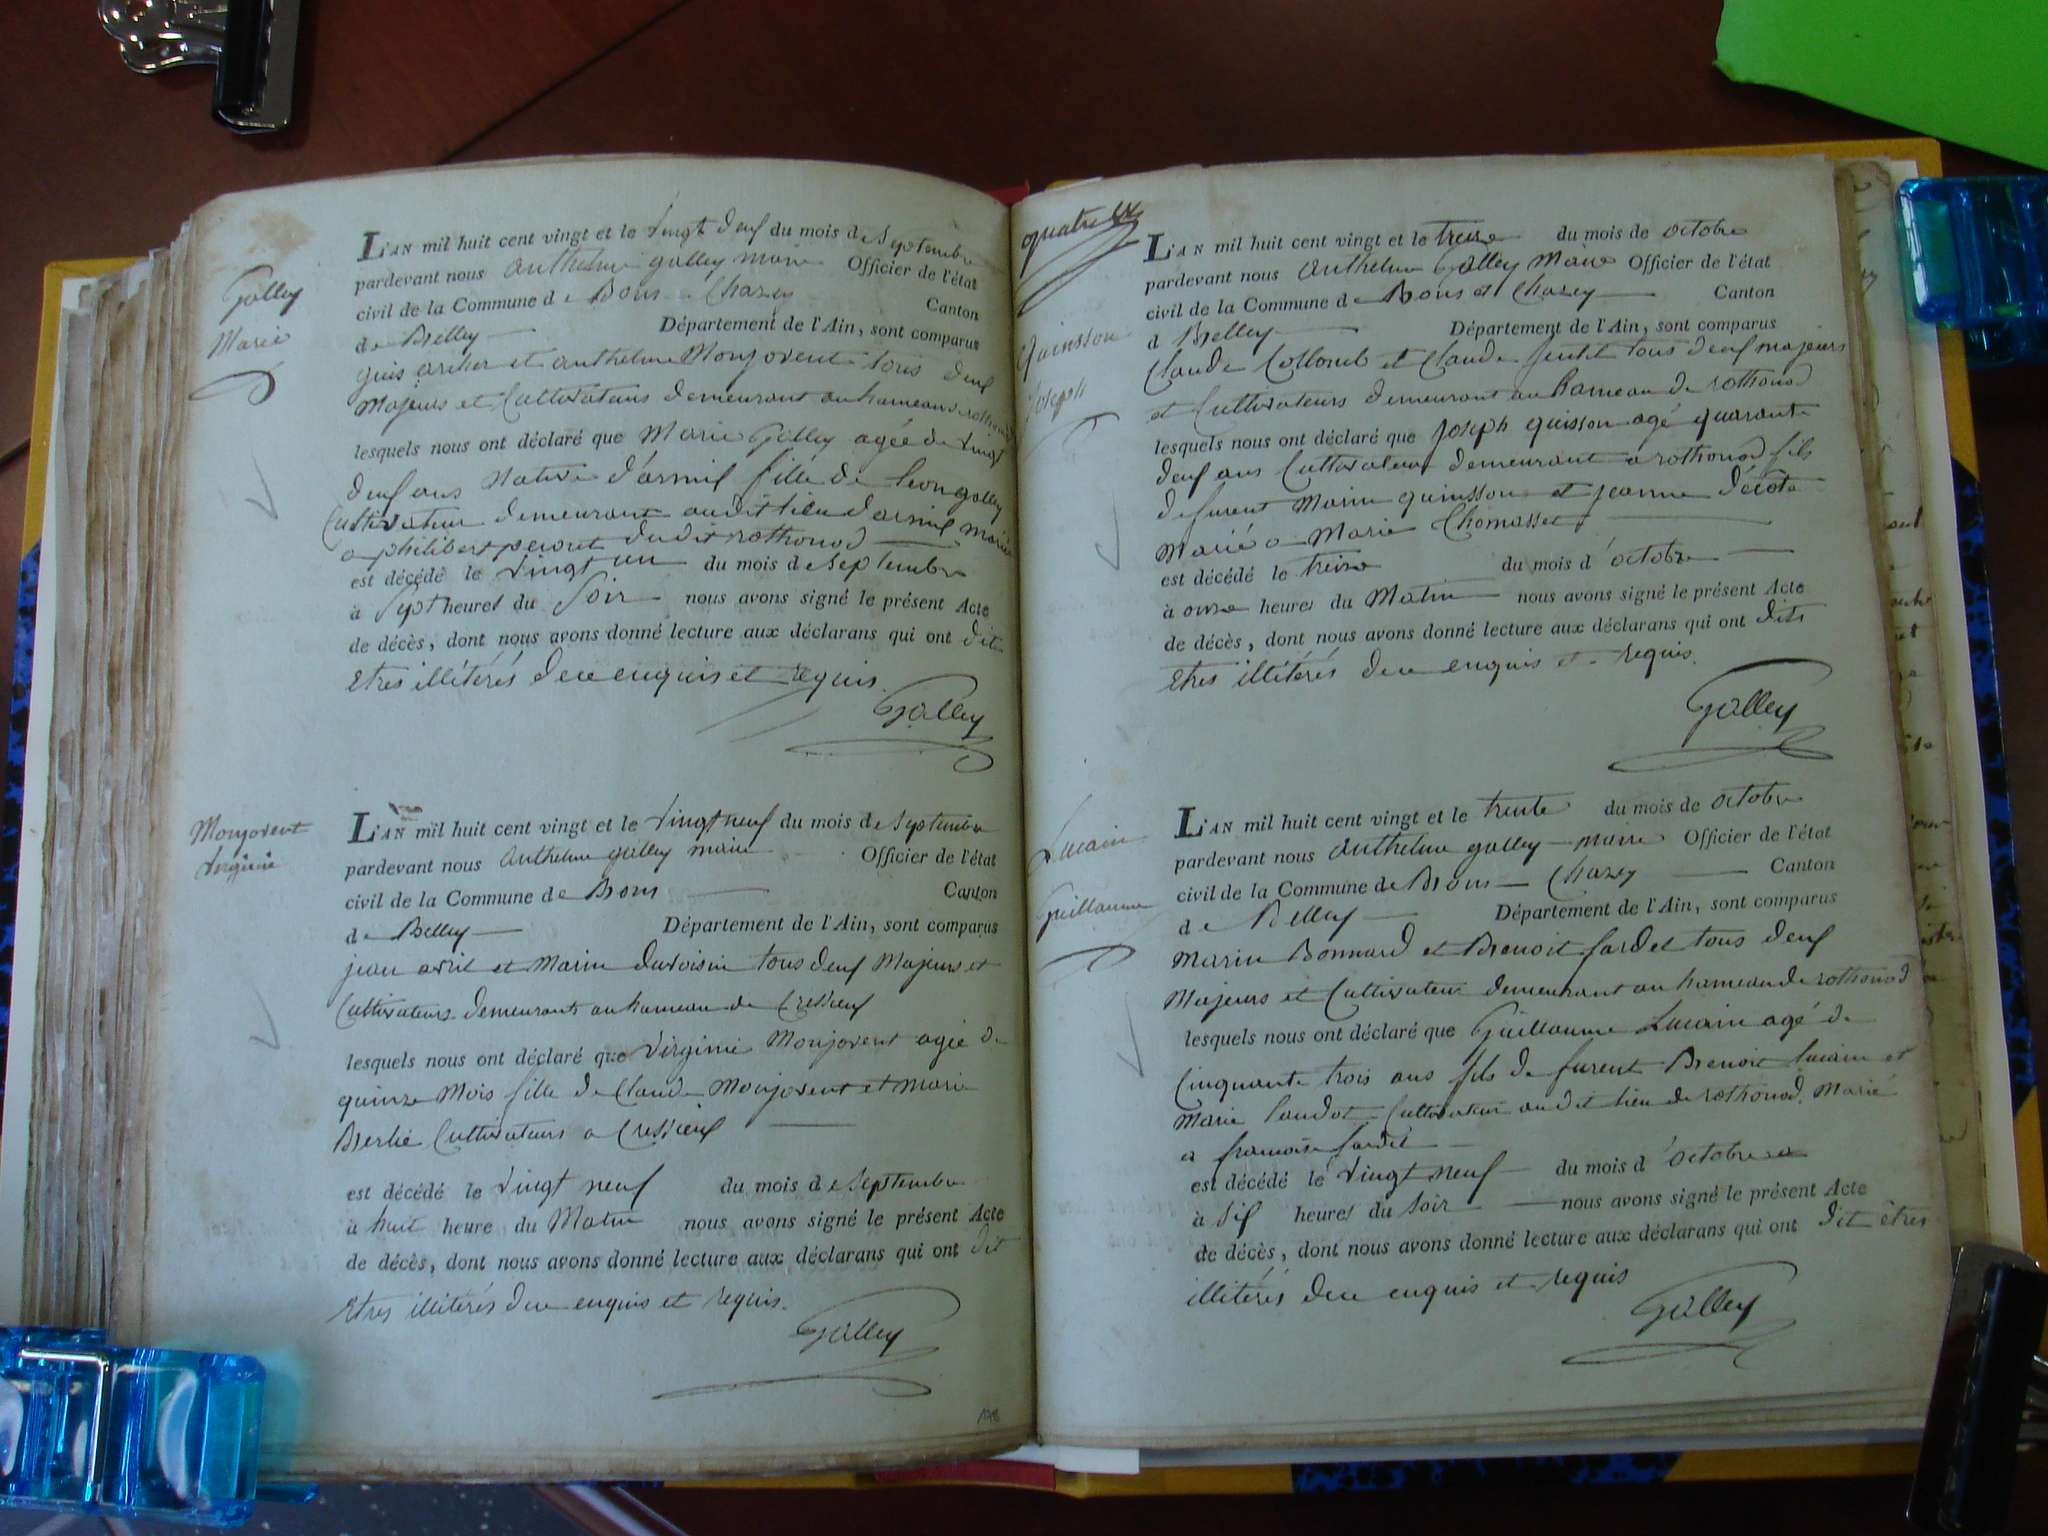 Galley
Marie
L'AN mil huit cent vingt et le vingt deux du mois de Septembre
pardevant nous Anthelme galley maire Officier de l'état
civil de la Commune de Bons - Chazey Canton
de Belley Département de l'Ain, sont comparus
et anthelme Monjovent tous deux
Majeurs et Cultivateurs demeurant au hameau de rothonod
lesquels nous ont déclaré que Marie Galley agée de vingt
deux ans Native d'armil fille de Leon galley
Cultivateur demeurant audit lieu d'armil mariée
a philibert peiout dudit rothonod
est décédé le vingt un du mois de Septembre
à Sept heures du Soir nous avons signé le présent Acte
de décès, dont nous avons donné lecture aux déclarans qui ont dit
Etres illitérés de ce enquis et requis.
Galley
Monjovent
Virginie
L'AN mil huit cent vingt et le vingt neuf du mois de Septembre
pardevant nous Anthelme galley maire Officier de l'état
civil de la Commune de Bons Canton
de Belley Département de l'Ain, sont comparus
jean avril et Marin duvoisin tous deux Majeurs et
Cultivateurs demeurants au hameau de Cressieux
lesquels nous ont déclaré que Virginie Monjovent agée de
quinze Mois fille de Claude Monjovent et Marie
Berlie Cultivateurs a Cressieux
est décédé le vingt neuf du mois de Septembre
à huit heure du Matin nous avons signé le présent Acte
de décès, dont nous avons donné lecture aux déclarans qui ont dit
Etres illitérés de ce enquis et requis.
Galley
178
quatre
Quinsson
Joseph
L'AN mil huit cent vingt et le treize du mois de octobre
pardevant nous Anthelme Galley Maire Officier de l'état
civil de la Commune de Bons et Chazey Canton
d Belley Département de l'Ain, sont comparus
Claude Collomb et Claude Jentit tous deux majeurs
et Cultivateurs demeurant au hameau de rothonod
lesquels nous ont déclaré que Joseph quisson agé quarante
deux ans Cultivateur demeurant a rothonod fils
de furent Marin quinsson et jeanne décota
Marié a Marie Thomasset
est décédé le treize du mois d'octobre
à onze heures du Matin nous avons signé le présent Acte
de décès, dont nous avons donné lecture aux déclarans qui ont dits
Etres illitérés de ce enquis et requis.
Galley
Lucain
Guillaume
L'AN mil huit cent vingt et le trente du mois de octobre
pardevant nous Anthelme galley maire Officier de l'état
civil de la Commune de Bons - Chazey Canton
de Belley Département de l'Ain, sont comparus
Marin Bonnard et Benoit fardet tous deux
Majeurs et Cultivateur demeurant au hameau de rothonod
lesquels nous ont déclaré que Guillaume Lucain agé de
Cinquante trois ans fils de furent Benoit lucain et
Marie laudot Cultivateur audit lieu de rothonod. Marié
a francoise fardet
est décédé le vingt neuf du mois d'octobre
à Six heures du Soir nous avons signé le présent Acte
de décès, dont nous avons donné lecture aux déclarans qui ont dit êtres
illitérés de ce enquis et requis
Galley